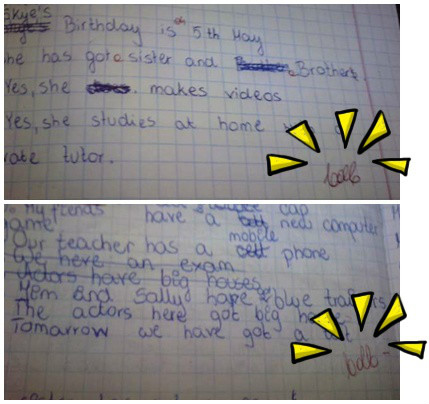 Skye's
Birthday is on 5th May
he has got a sister and a Brother.
Yes, she makes videos
Yes, she studies at home
vate tutor.
My friends have a new computer
game
mobile
Our teacher has a cell phone
We here an exam
Actors have big houses
Yem and Sally have blue
The actors here got big
Tomorrow we have got a